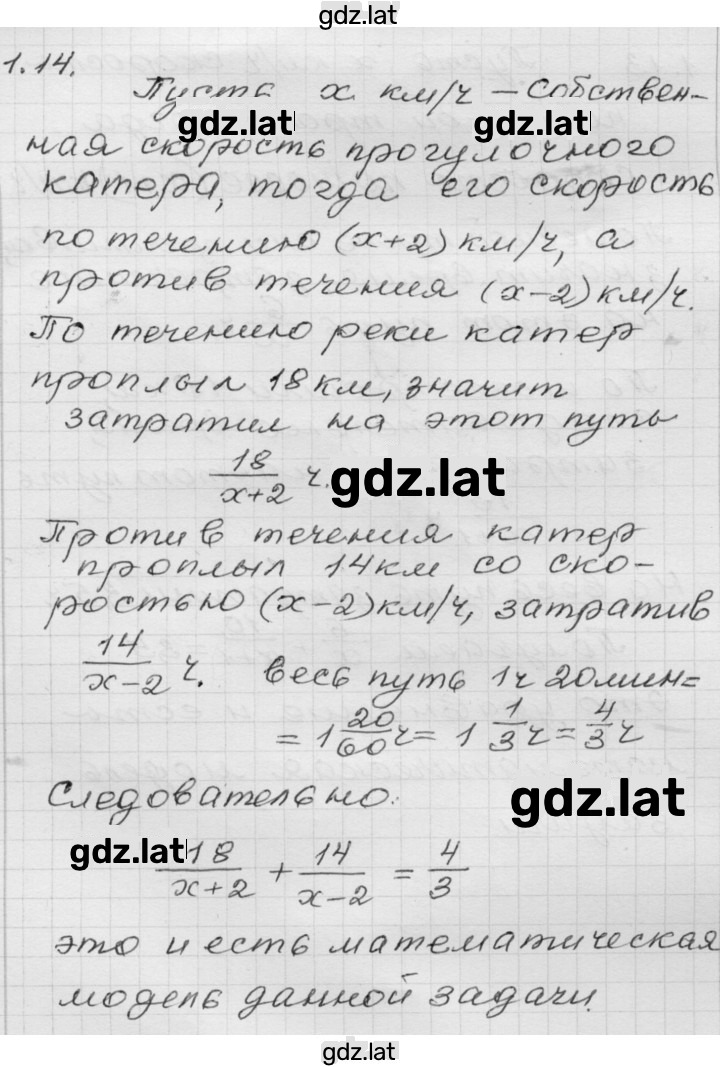 gdz.lat
1.14.
Пуста x км/ч – собствен-
gdz.lat gdz.lat
ная скорость прогулочного
катера, тогда его скорость
по течению (x+2) км/ч, а
против течения (x-2) км/ч.
По течению реки катер
проплыл 18 км, значит
затратил на этот путь
18/(x+2) ч. gdz.lat
Против течения катер
проплыл 14 км со ско-
ростью (x-2) км/ч, затратив
14/(x-2) ч. весь путь 1ч 20мин=
= 1 20/60 ч = 1 1/3 ч = 4/3 ч
Следовательно: gdz.lat
gdz.lat 18/(x+2) + 14/(x-2) = 4/3
это и есть математическая
модель данной задачи.
gdz.lat